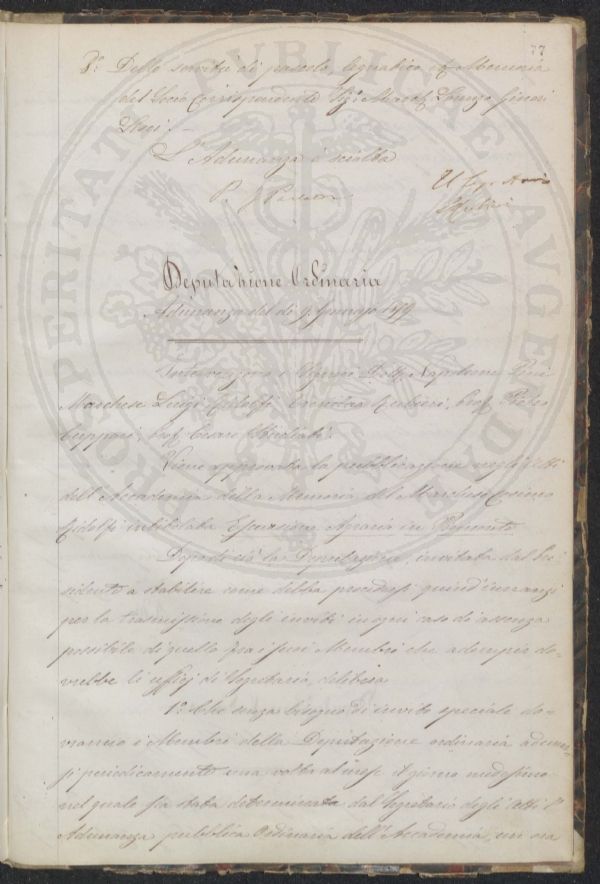 77
8º Delle servitù di pascolo, legnatico ec. Memoria
del Socio Corrispondente Sig. March. Lorenzo Ginori
Lisci.
L'Adunanza è sciolta
Deputazione Ordinaria
Adunanza del dì 9. Gennajo 1859
Intervengono i Signori Dott. Napoleone Pini
Marchese Luigi Ridolfi, Prof. Pietro
Cuppari, Prof. Cesare
Viene approvata la pubblicazione negli Atti
dell'Accademia della Memoria del Marchese Cosimo
Ridolfi intitolata Escursione Agraria in Piemonte
Dopo di ciò la Deputazione, invitata dal Pre-
sidente a stabilire come debba procedersi quind'innanzi
per la trasmissione degli inviti in ogni caso di assenza
possibile di quello fra i suoi Membri che adempier do-
vrebbe li uffizj di Segretario, delibera
1º Che senza bisogno di invito speciale do-
vranno i Membri della Deputazione ordinaria adunar-
si periodicamente una volta al mese il giorno medesimo
nel quale sia stata determinata dal Segretario degli Atti l'
Adunanza pubblica Ordinaria dell'Accademia, un ora
PROSPERITATI PVBLICAE AVGENDAE